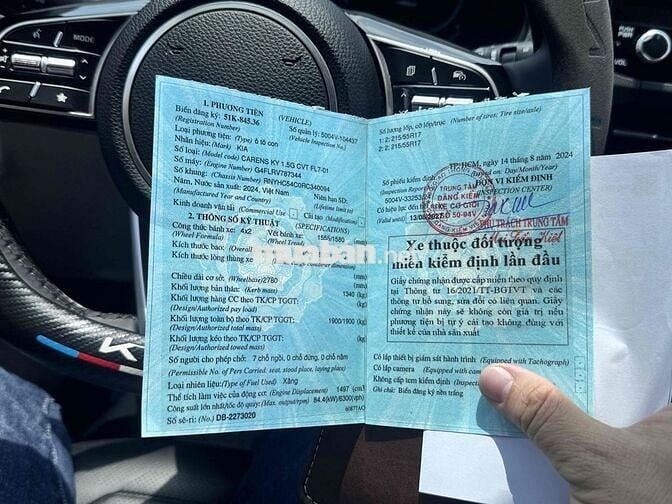 MODE
1. PHƯƠNG TIỆN
(VEHICLE)
Biển đăng ký: 51K-845.36
(Registration Number)
Số quản lý: 5004V-104437
(Vehicle Inspection No.)
Loại phương tiện: (Type) ô tô con
Nhãn hiệu: (Mark) KIA
Số loại: (Model code) CARENS KY 1.5G CVT FL7-01
Số máy: (Engine Number) G4FLRV787344
Số khung: (Chassis Number) RNYHC54C0RC340094
Năm, Nước sản xuất: 2024, Việt Nam
(Manufactured Year and Country)
Niên hạn SD:
(Lifetime limit to)
Kinh doanh vận tải
(Commercial Use)
Cải tạo
(Modification)
2. THÔNG SỐ KỸ THUẬT
(SPECIFICATIONS)
Công thức bánh xe: 4x2
(Wheel Formula)
Vết bánh xe: 1556/1580
(Wheel Trend)
(mm)
Kích thước bao: (Overall
Kích thước lòng thùng xe
Chiều dài cơ sở: (Wheelbase) 2780 (mm)
Khối lượng bản thân: (Kerb mass) 1340 (kg)
Khối lượng hàng CC theo TK/CP TGGT: (kg)
(Design/Authorized pay load)
Khối lượng toàn bộ theo TK/CP TGGT: 1900/1900 (kg)
(Design/Authorized total mass)
Khối lượng kéo theo TK/CP TGGT: (kg)
(Design/Authorized towed mass)
Số người cho phép chở: 7 chỗ ngồi, 0 chỗ đứng, 0 chỗ nằm
(Permissible No. of Pers Carried: seat, stood place, laying place)
Loại nhiên liệu: (Type of Fuel Used) Xăng
Thể tích làm việc của động cơ: (Engine Displacement) 1497 (cm³)
Công suất lớn nhất/tốc độ quay: (Max. output/rpm) 84.4(kW)/6300vph
Số sê-ri: (No.) DB-2273020
Số lượng lốp, cỡ lốp/trục (Number of tires; Tire size/axle)
1: 2; 215/55R17
2: 2; 215/55R17
Số phiếu kiểm định
(Inspection Report
5004V-3325
Có hiệu lực đến hết
(Valid until) 13/08/2027
TP. HCM, ngày 14 tháng 8 năm 2024
(Issued on: Day/Month/Year)
ĐƠN VỊ KIỂM ĐỊNH
(INSPECTION CENTER)
TRUNG TÂM
ĐĂNG KIỂM
XE CƠ GIỚI
50-04V
PHỤ TRÁCH TRUNG TÂM
Xe thuộc đối tượng
miễn kiểm định lần đầu
Giấy chứng nhận được cấp miễn theo quy định
tại Thông tư 16/2021/TT-BGTVT và các
thông tư bổ sung, sửa đổi có liên quan. Giấy
chứng nhận này sẽ không còn giá trị nếu
phương tiện bị tự ý cải tạo không đúng với
thiết kế của nhà sản xuất
Có lắp thiết bị giám sát hành trình (Equipped with Tachograph)
Có lắp camera (Equipped with Camera)
Không cấp tem kiểm định (Inspec
Ghi chú: Biển đăng ký nền trắng
muaban.net